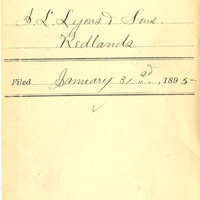 S. L. Lyons & Sons.
Redlands
Filed January 31st, 1895